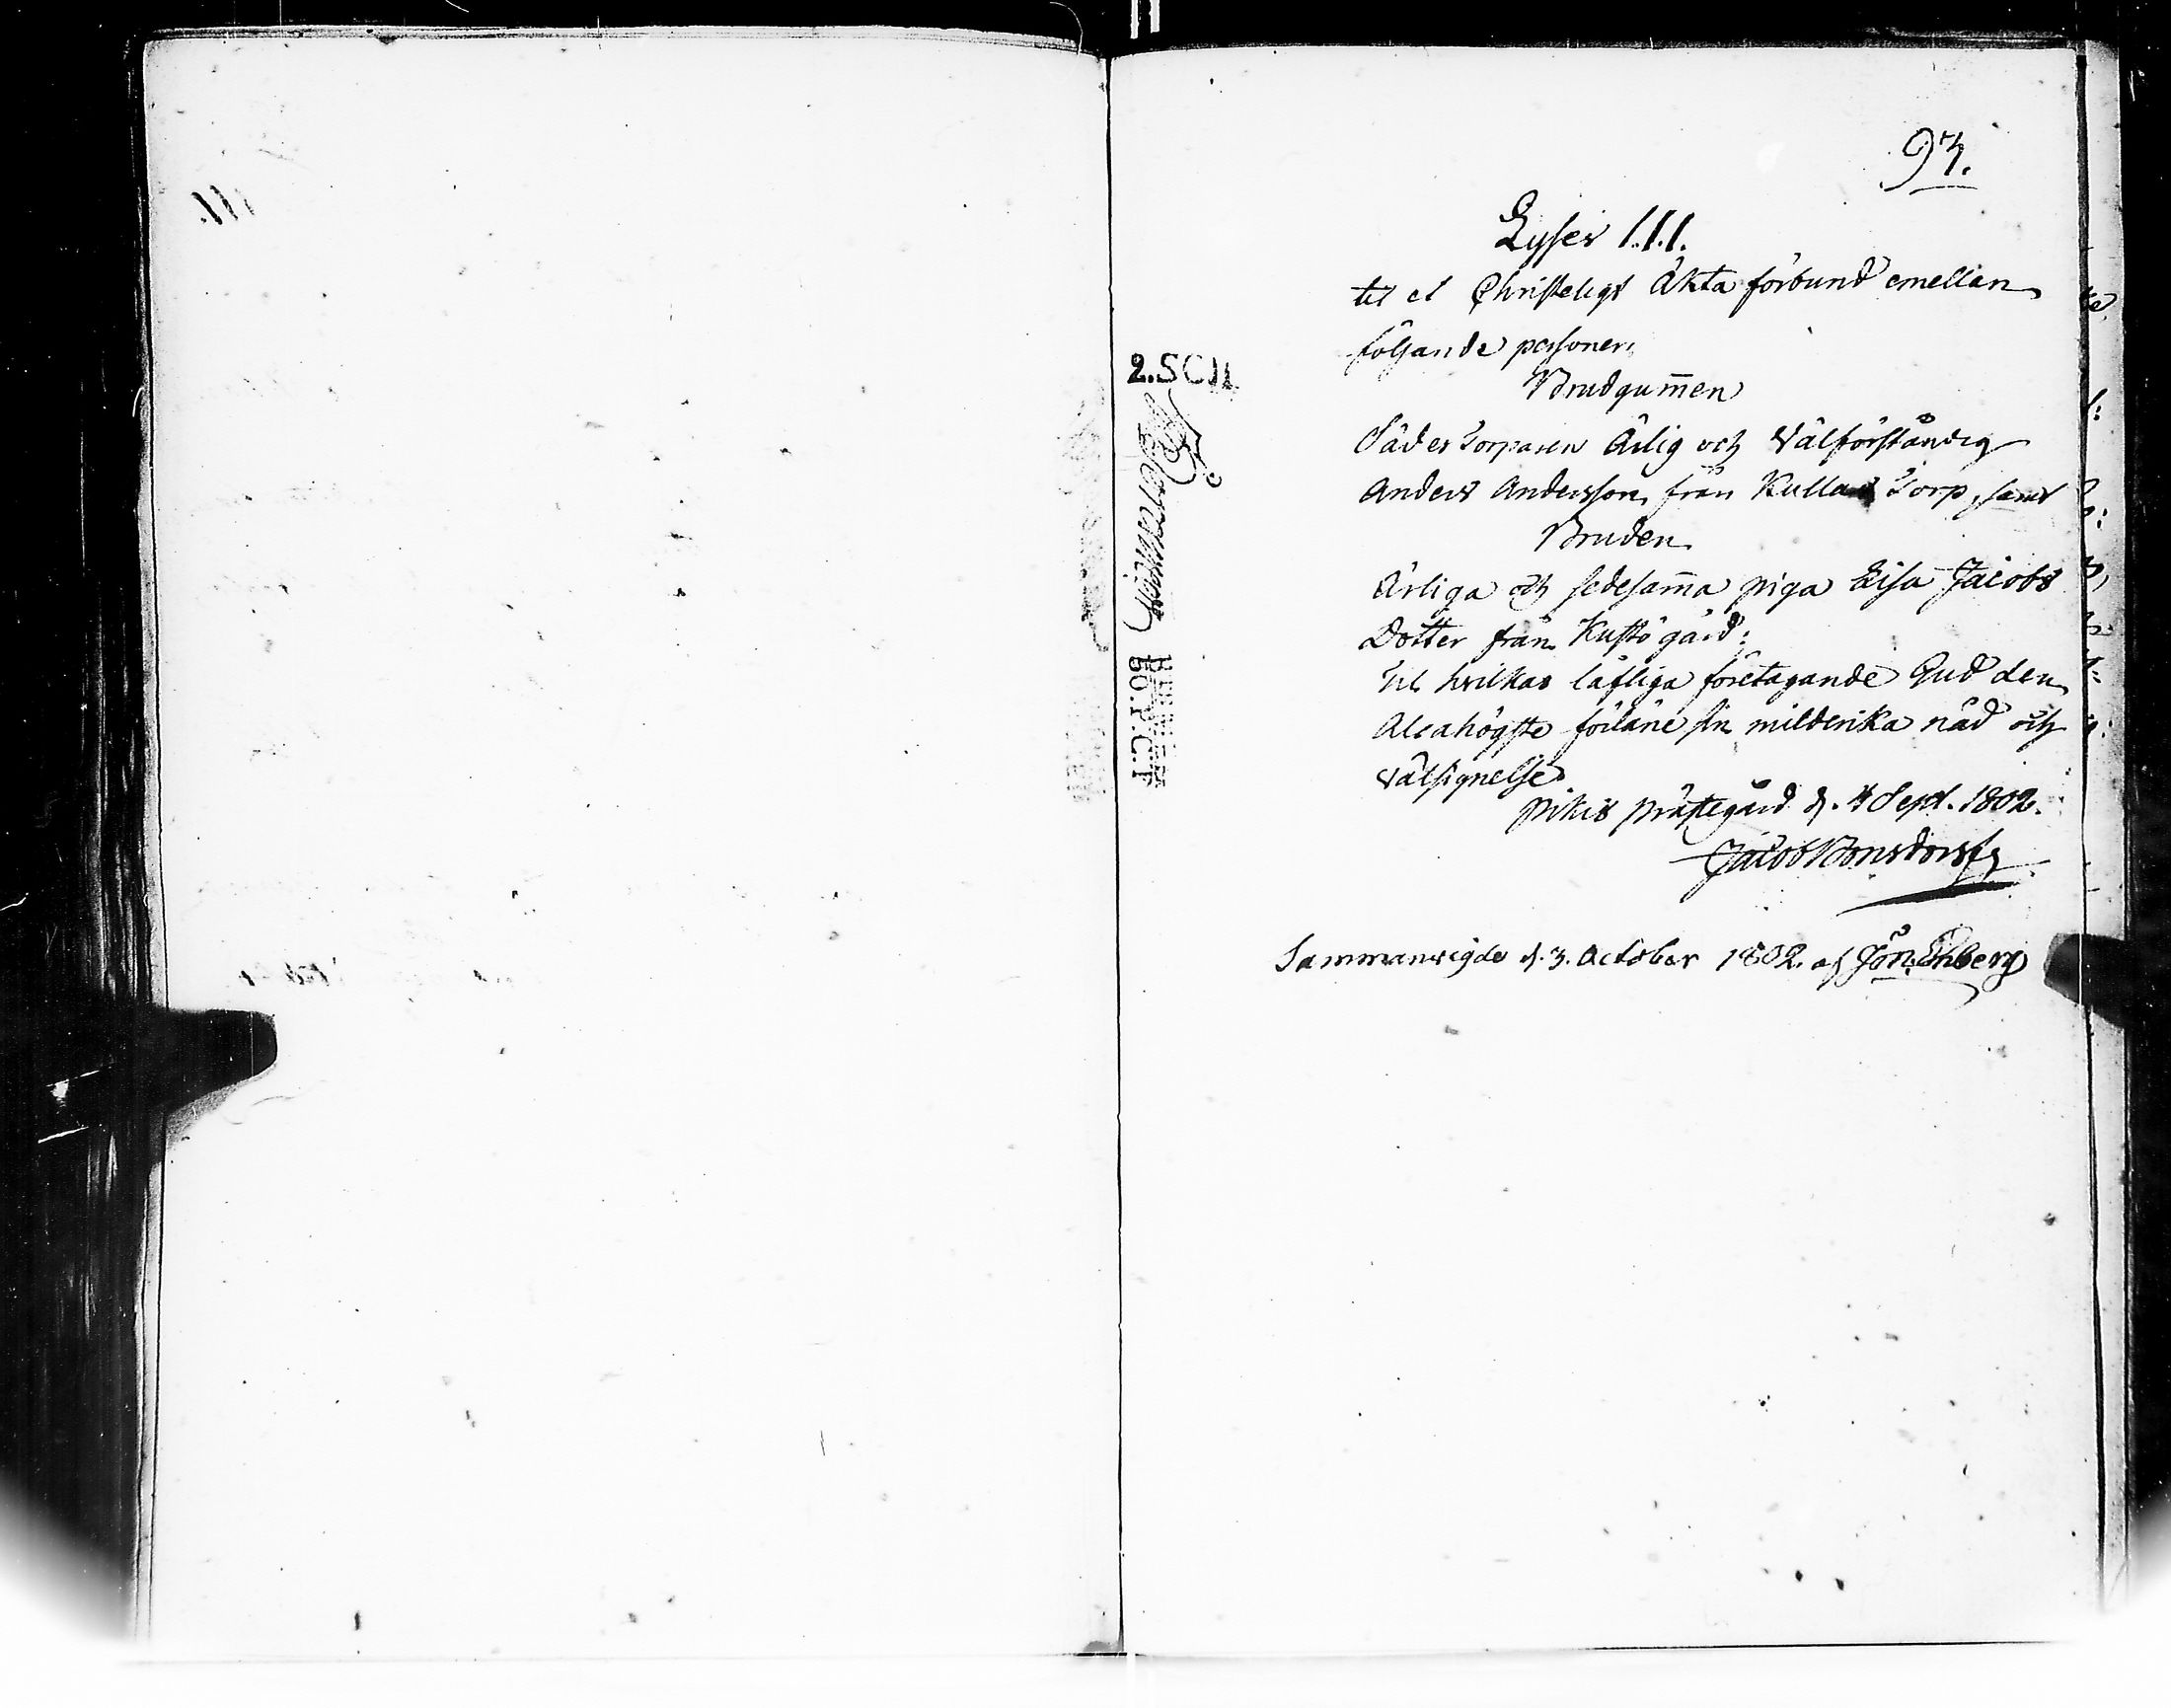 93.
Lyses I.I.I.
til et Christeligt Äkta förbund emellan
följande personer,
Brudgum̄en
Sädes Torparen Ärlig och Välförståndig
Anders Andersson från Kullas Torp, samt
Bruden
Ärliga och sedesam̄a pigan Lisa Jacobs
Dotter från Kustö gård:
Til hvilkas lofliga företagande Gud den
Alrahögste förläne sin milderika nåd och
välsignelse
Pikis Prästegård d. 4 Sept. 1802.
Jacob Bonsdorff
Sammanvigde d. 3. October 1802. af Jon. Ehberg
2.SCH
BO.P.C.F